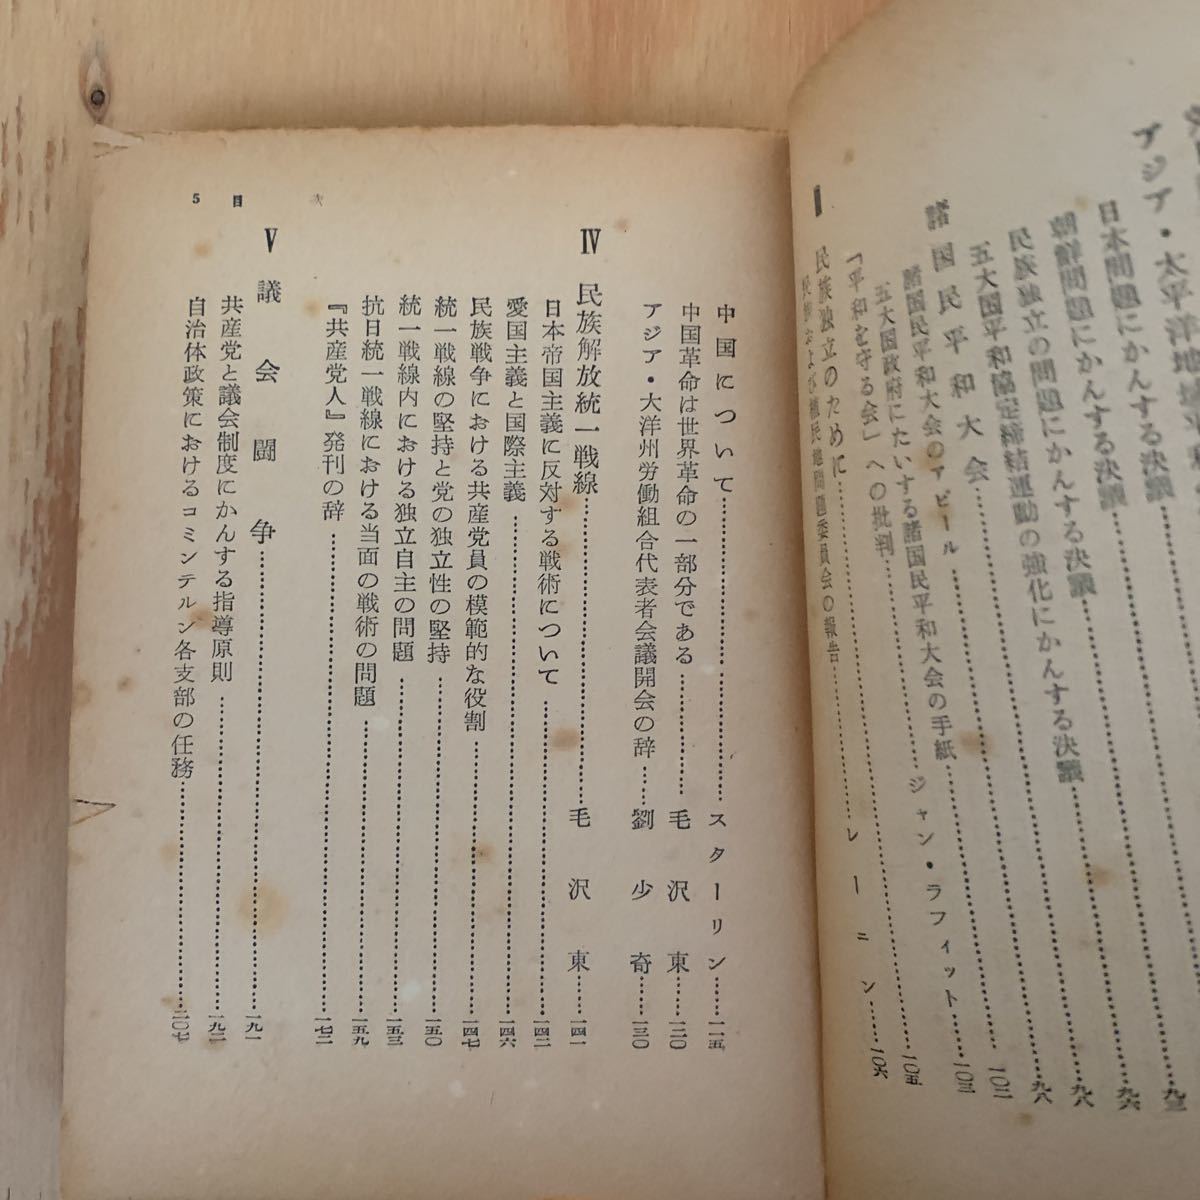 アジア・太平洋地域平和
日本問題にかんする決議……九六
朝鮮問題にかんする決議……九八
民族独立の問題にかんする決議……九八
五大国平和協定締結運動の強化にかんする決議……一〇二
諸国民平和大会……一〇三
諸国民平和大会のアピール……一〇三
五大国政府にたいする諸国民平和大会の手紙……一〇五
『平和を守る会』への批判……ジャン・ラフィット
民族独立のために……レーニン……一〇六
委員会の報告
中国について……スターリン……一一五
中国革命は世界革命の一部分である……毛沢東……一二〇
アジア・大洋州労働組合代表者会議開会の辞……劉少奇……一三〇
Ⅳ 民族解放統一戦線……毛沢東……一四一
日本帝国主義に反対する戦術について……一四二
愛国主義と国際主義……一四六
民族戦争における共産党員の模範的な役割……一四七
統一戦線の堅持と党の独立性の堅持……一五〇
統一戦線内における独立自主の問題……一五三
抗日統一戦線における当面の戦術の問題……一五九
『共産党人』発刊の辞……一七二
Ⅴ 議会闘争……一九一
共産党と議会制度にかんする指導原則……一九二
自治体政策におけるコミンテルン各支部の任務……二〇七
5 目次